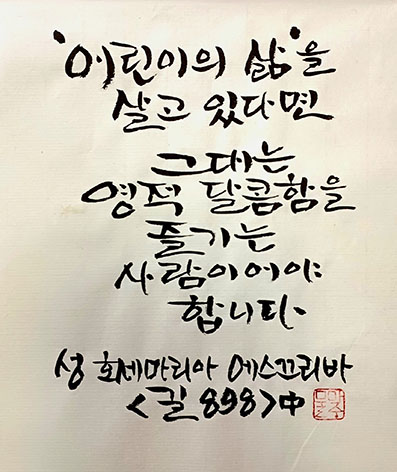 '어린이의 삶'을
살고 있다면
그대는
영적 달콤함을
즐기는
사람이어야
합니다.
성 호세마리아 에스끄리바
<길 898>中